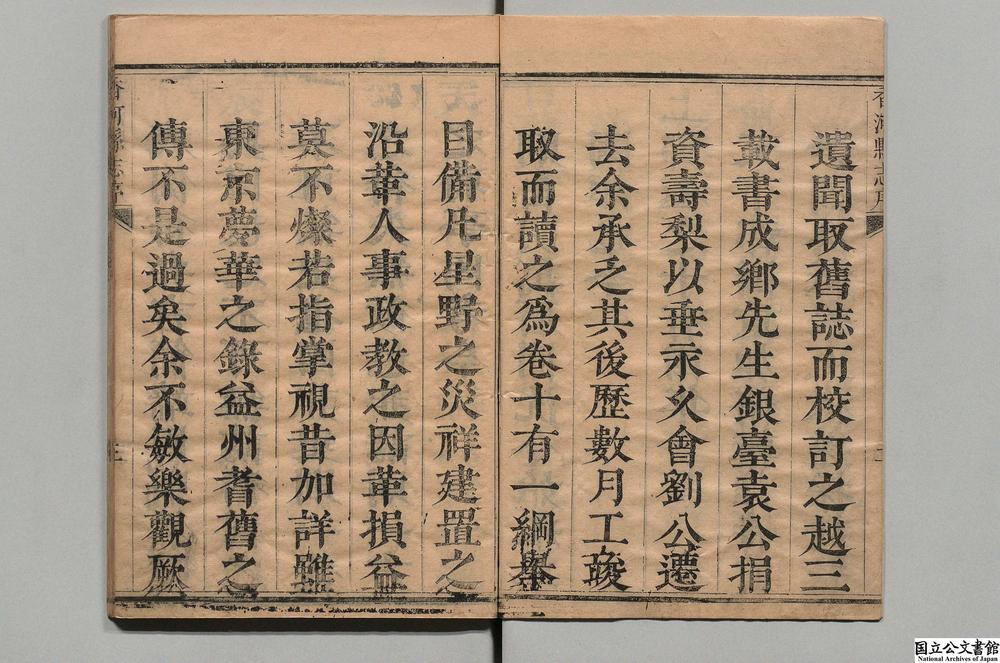 遺聞取舊誌而校訂之越三
載書成鄉先生銀臺袁公捐
資壽梨以垂永久會劉公遷
去余承乏其後歷數月工竣
取而讀之爲卷十有一綱舉
目備凡星野之災祥建置之
沿革人事政教之因革損益
莫不燦若指掌視昔加詳雖
東京夢華之錄益州耆舊之
傳不是過矣余不敏樂觀厥
香河縣志序
香河縣志序
三
国立公文書館
National Archives of Japan